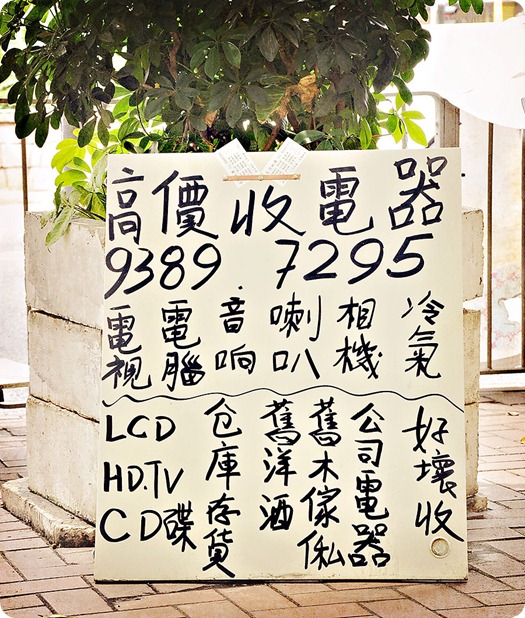 高價收電器
9389.7295
電視 電腦 音响 喇叭 相機 冷氣
LCD
HD.TV
CD碟
仓庫存貨
舊洋酒
舊木傢俬
公司電器
好壞收